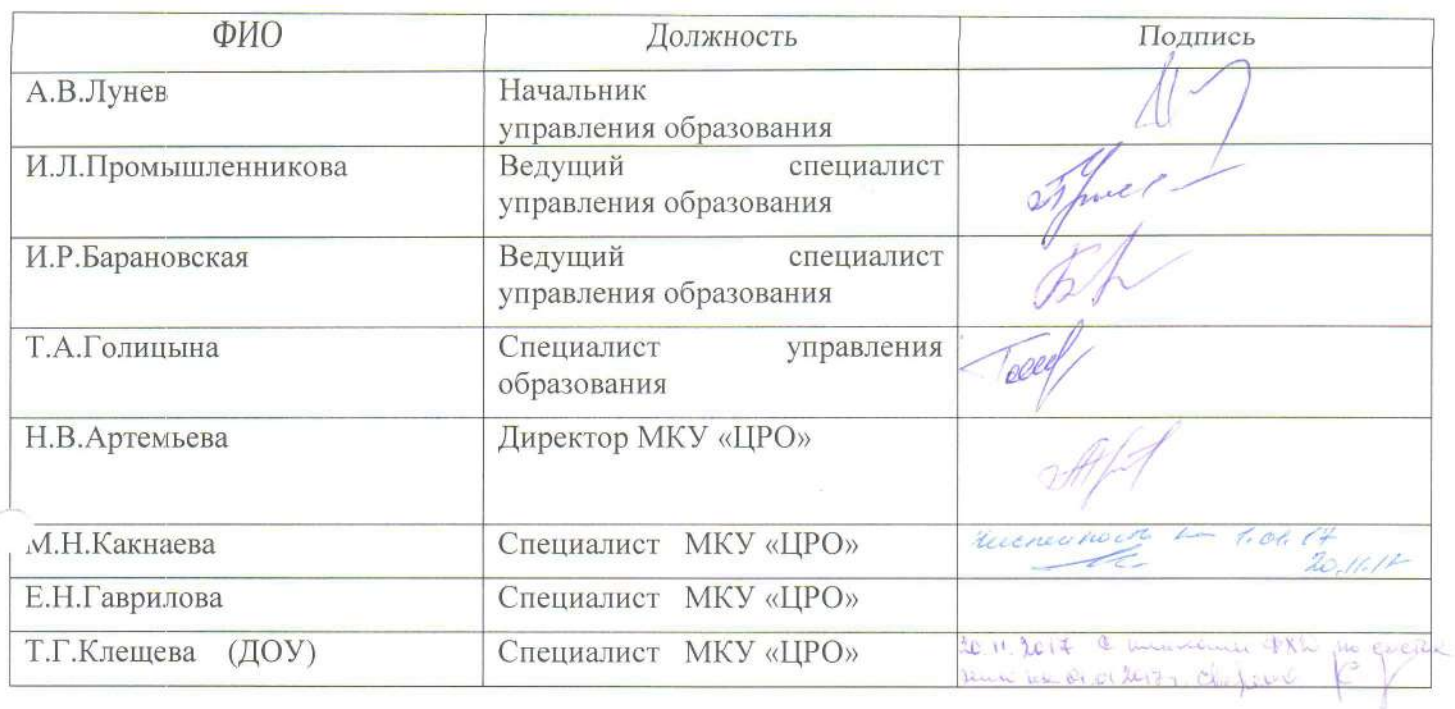 ФИО Должность Подпись
А.В.Лунев Начальник
управления образования
И.Л.Промышленникова Ведущий специалист
управления образования
И.Р.Барановская Ведущий специалист
управления образования
Т.А.Голицына Специалист управления
образования
Н.В.Артемьева Директор МКУ «ЦРО»
М.Н.Какнаева Специалист МКУ «ЦРО» численность на 1.01.17
20.11.17
Е.Н.Гаврилова Специалист МКУ «ЦРО»
Т.Г.Клещева (ДОУ) Специалист МКУ «ЦРО» 20.11.2017 С ФХД по
на 01.01.2017г.